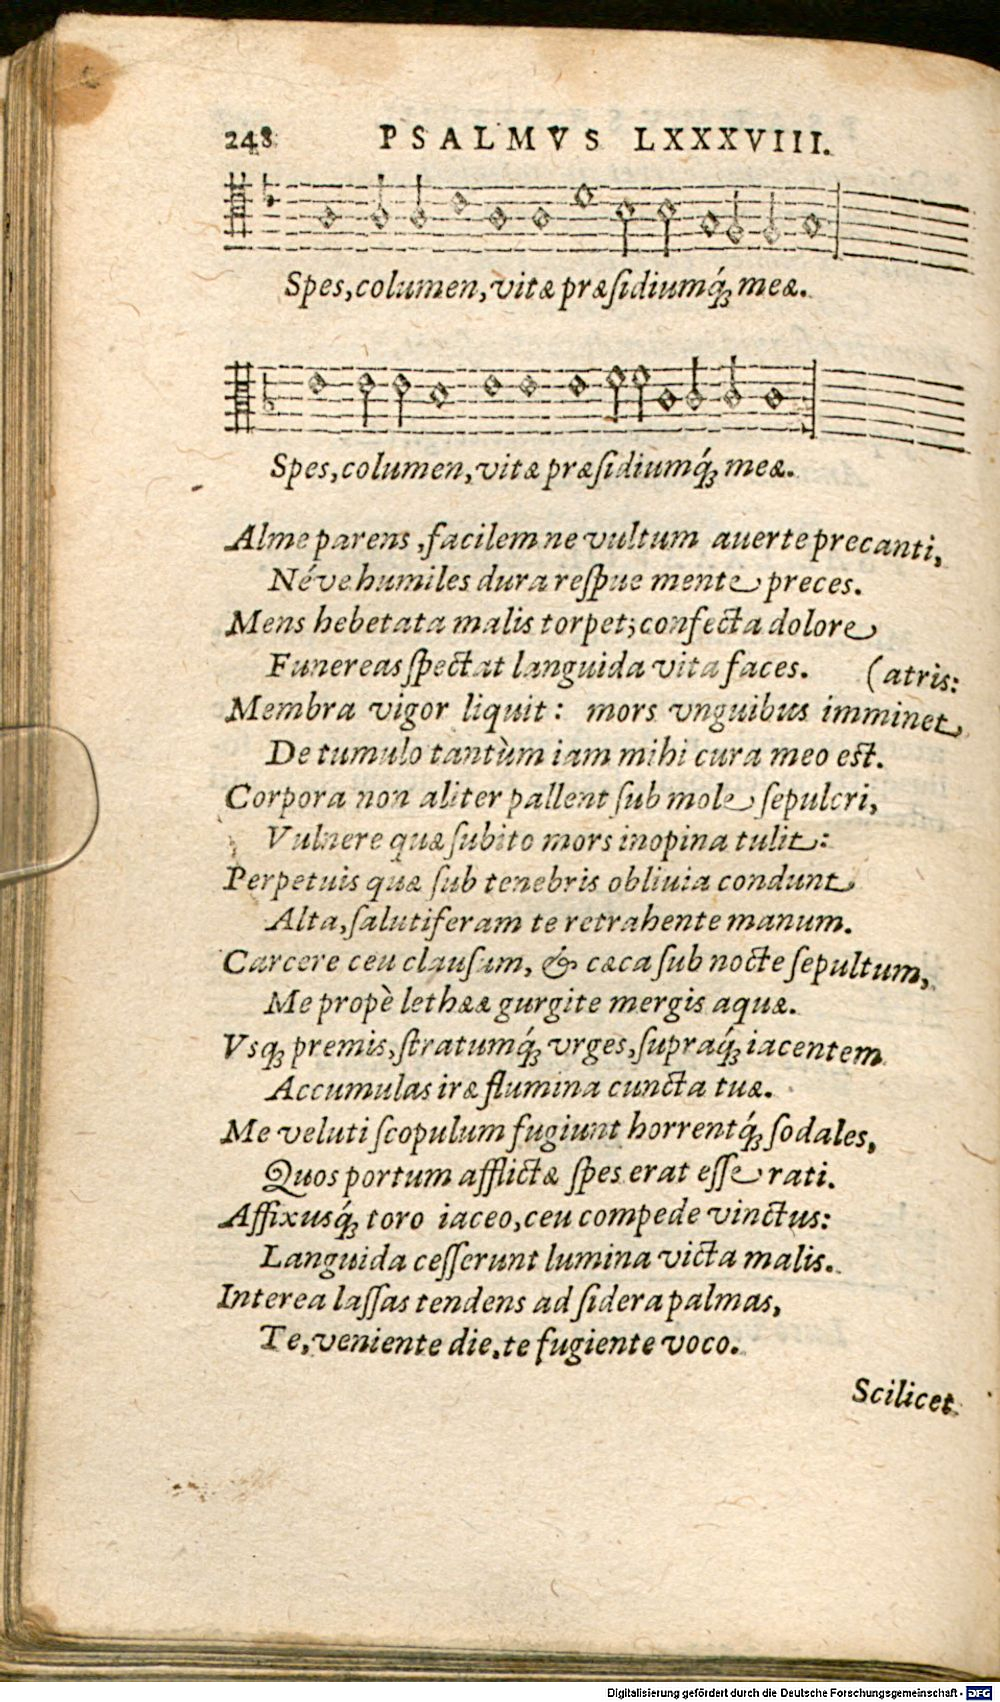 248 PSALMVS LXXXVIII.
Spes, columen, vitæ præſidiumq́ꝫ meæ.
Spes, columen, vitæ præſidiumq́ꝫ meæ.
Alme parens, facilem ne vultum auerte precanti,
Néve humiles dura reſpue mente preces.
Mens hebetata malis torpet; confecta dolore
Funereas ſpectat languida vita faces. (atris:
Membra vigor liquit: mors vnguibus imminet
De tumulo tantùm iam mihi cura meo est.
Corpora non aliter pallent ſub mole ſepulcri,
Vulnere quæ ſubito mors inopina tulit:
Perpetuis quæ ſub tenebris obliuia condunt
Alta, ſalutiferam te retrahente manum.
Carcere ceu clauſum, & cæca ſub nocte ſepultum,
Me propè lethææ gurgite mergis aquæ.
Vsqꝫ premis, ſtratumq́ꝫ vrges, ſupraq́ꝫ iacentem
Accumulas iræ flumina cuncta tuæ.
Me veluti ſcopulum fugiunt horrentq́ꝫ ſodales,
Quos portum afflictæ ſpes erat eſſe rati.
Affixusq́ꝫ toro iaceo, ceu compede vinctus:
Languida ceſſerunt lumina victa malis.
Interea laſſas tendens ad ſidera palmas,
Te, veniente die, te fugiente voco.
Scilicet
Digitalisierung gefördert durch die Deutsche Forschungsgemeinschaft - DFG